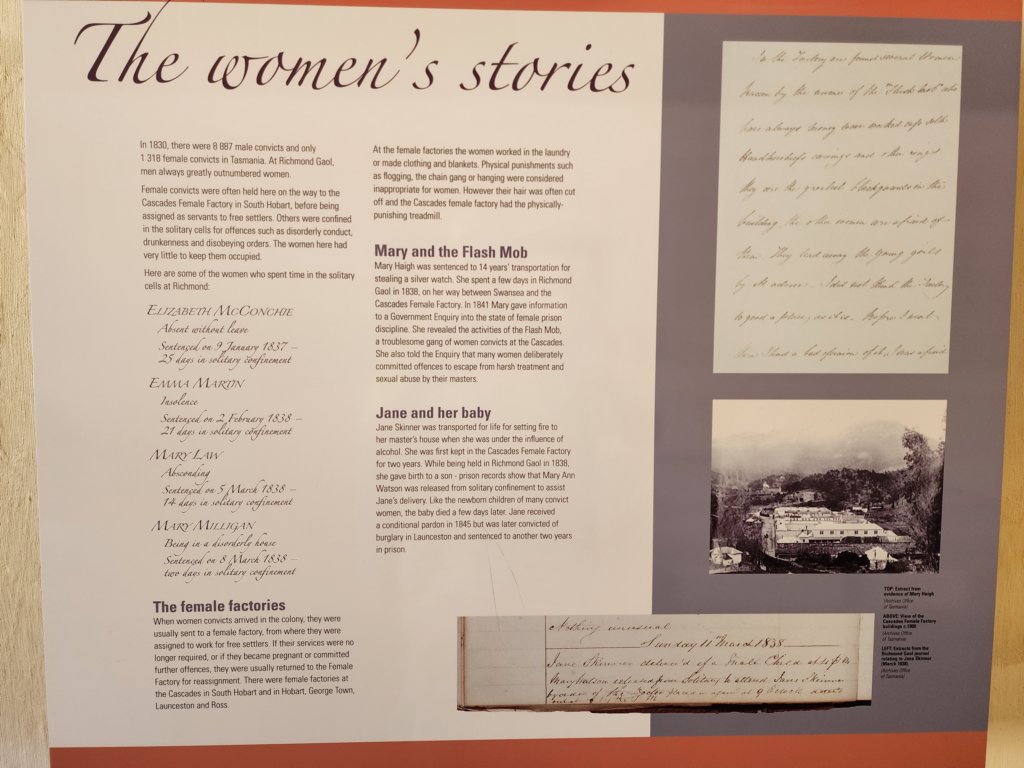 The women's stories
In 1830, there were 8 887 male convicts and only
1 318 female convicts in Tasmania. At Richmond Gaol,
men always greatly outnumbered women.
Female convicts were often held here on the way to the
Cascades Female Factory in South Hobart, before being
assigned as servants to free settlers. Others were confined
in the solitary cells for offences such as disorderly conduct,
drunkenness and disobeying orders. The women here had
very little to keep them occupied.
Here are some of the women who spent time in the solitary
cells at Richmond:
Elizabeth McConchie
Absent without leave
Sentenced on 9 January 1837 –
25 days in solitary confinement
Emma Martin
Insolence
Sentenced on 2 February 1838 –
21 days in solitary confinement
Mary Law
Absconding
Sentenced on 5 March 1838 –
14 days in solitary confinement
Mary Milligan
Being in a disorderly house
Sentenced on 8 March 1838 –
two days in solitary confinement
The female factories
When women convicts arrived in the colony, they were
usually sent to a female factory, from where they were
assigned to work for free settlers. If their services were no
longer required, or if they became pregnant or committed
further offences, they were usually returned to the Female
Factory for reassignment. There were female factories at
the Cascades in South Hobart and in Hobart, George Town,
Launceston and Ross.
At the female factories the women worked in the laundry
or made clothing and blankets. Physical punishments such
as flogging, the chain gang or hanging were considered
inappropriate for women. However their hair was often cut
off and the Cascades female factory had the physically-
punishing treadmill.
Mary and the Flash Mob
Mary Haigh was sentenced to 14 years' transportation for
stealing a silver watch. She spent a few days in Richmond
Gaol in 1838, on her way between Swansea and the
Cascades Female Factory. In 1841 Mary gave information
to a Government Enquiry into the state of female prison
discipline. She revealed the activities of the Flash Mob,
a troublesome gang of women convicts at the Cascades.
She also told the Enquiry that many women deliberately
committed offences to escape from harsh treatment and
sexual abuse by their masters.
Jane and her baby
Jane Skinner was transported for life for setting fire to
her master's house when she was under the influence of
alcohol. She was first kept in the Cascades Female Factory
for two years. While being held in Richmond Gaol in 1838,
she gave birth to a son - prison records show that Mary Ann
Watson was released from solitary confinement to assist
Jane's delivery. Like the newborn children of many convict
women, the baby died a few days later. Jane received
a conditional pardon in 1845 but was later convicted of
burglary in Launceston and sentenced to another two years
in prison.
In the Factory are found several Women
known by the name of the "Flash mob" who
have always money wear worked caps silk
Handkerchiefs earrings and other rings
they are the greatest blackguards in the
building the other women are afraid of
them They lead away the young girls
by ill advice I did not think the Factory
so good a place as it is Before I went
there I had a bad opinion of it, I was afraid
Nothing unusual
Sunday 11 March 1838
Jane Skinner deliver'd of a Male Child
Mary Watson released from Solitary to attend Jane Skinner
TOP: Extract from
evidence of Mary Haigh
(Archives Office
of Tasmania)
ABOVE: View of the
Cascades Female Factory
buildings c.1900
(Archives Office
of Tasmania)
LEFT: Extracts from the
Richmond Gaol journal
relating to Jane Skinner
(March 1838)
(Archives Office
of Tasmania)